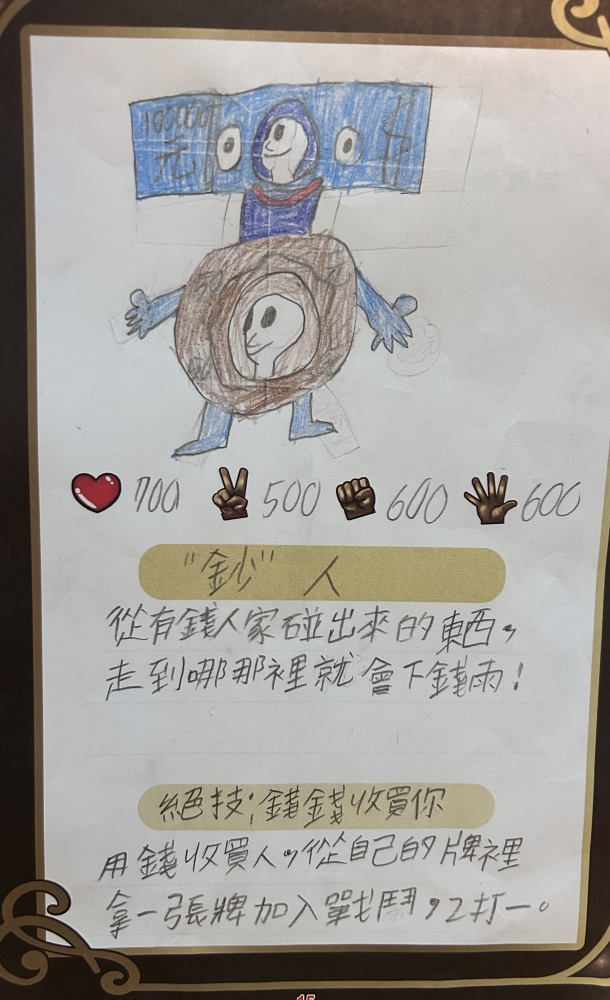 100000
元
700 500 600 600
"鈔" 人
從有錢人家碰出來的東西,
走到哪那裡就會下錢雨!
絕技:錢錢收買你
用錢收買人,從自己的牌裡
拿一張牌加入戰鬥,2打一。
15